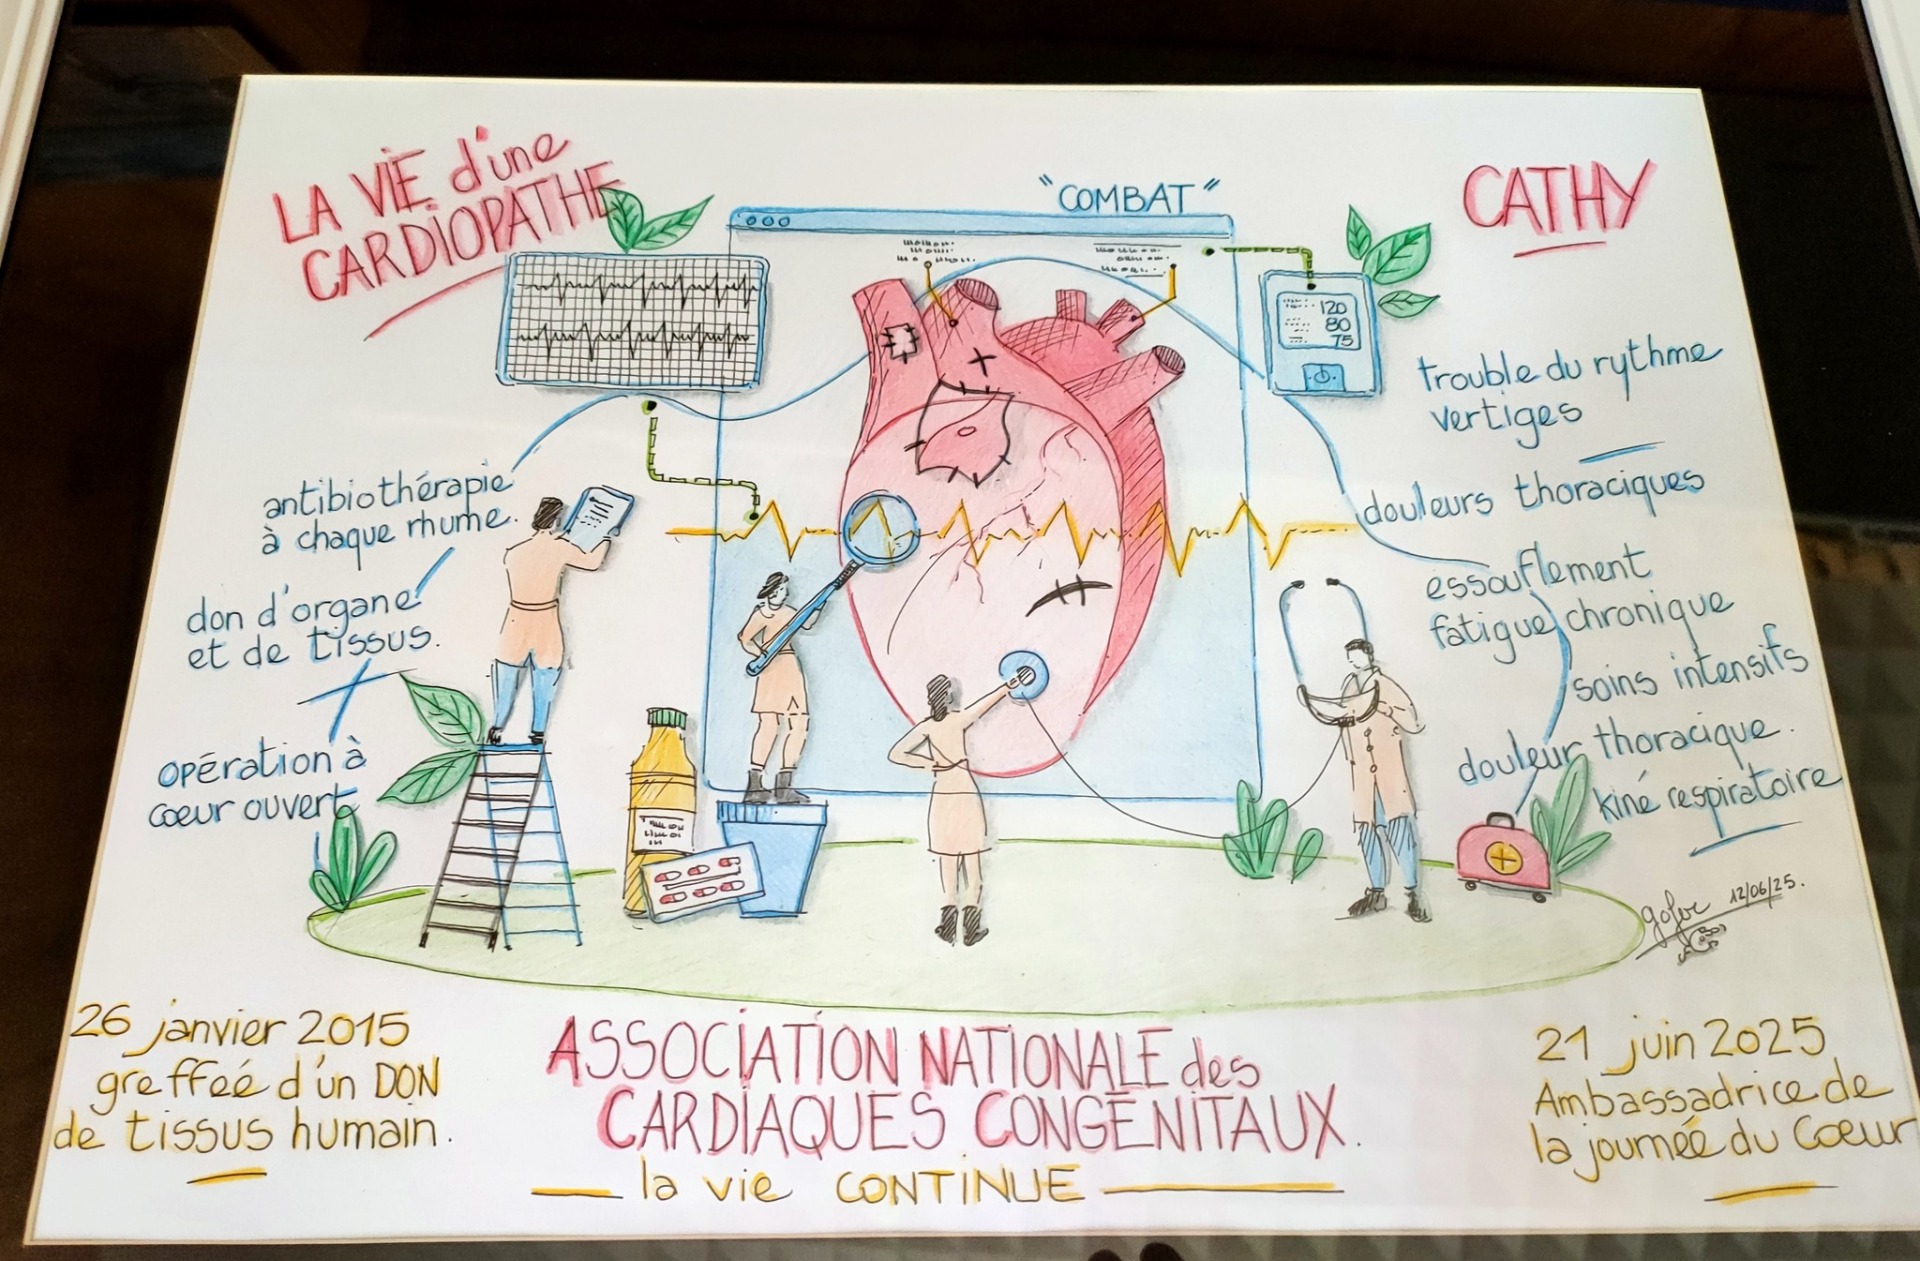 LA VIE d'une
CARDIOPATHE
"COMBAT"
CATHY
120
80
75
trouble du rythme
vertiges
douleurs thoraciques
essouflement
fatigue chronique
soins intensifs
douleur thoracique.
kiné respiratoire
antibiothérapie
à chaque rhume.
don d'organe
et de tissus.
opération à
cœur ouvert
12/06/25.
26 janvier 2015
greffeé d'un DON
de tissus humain.
ASSOCIATION NATIONALE des
CARDIAQUES CONGÉNITAUX.
la vie CONTINUE
21 juin 2025
Ambassadrice de
la journée du Cœur